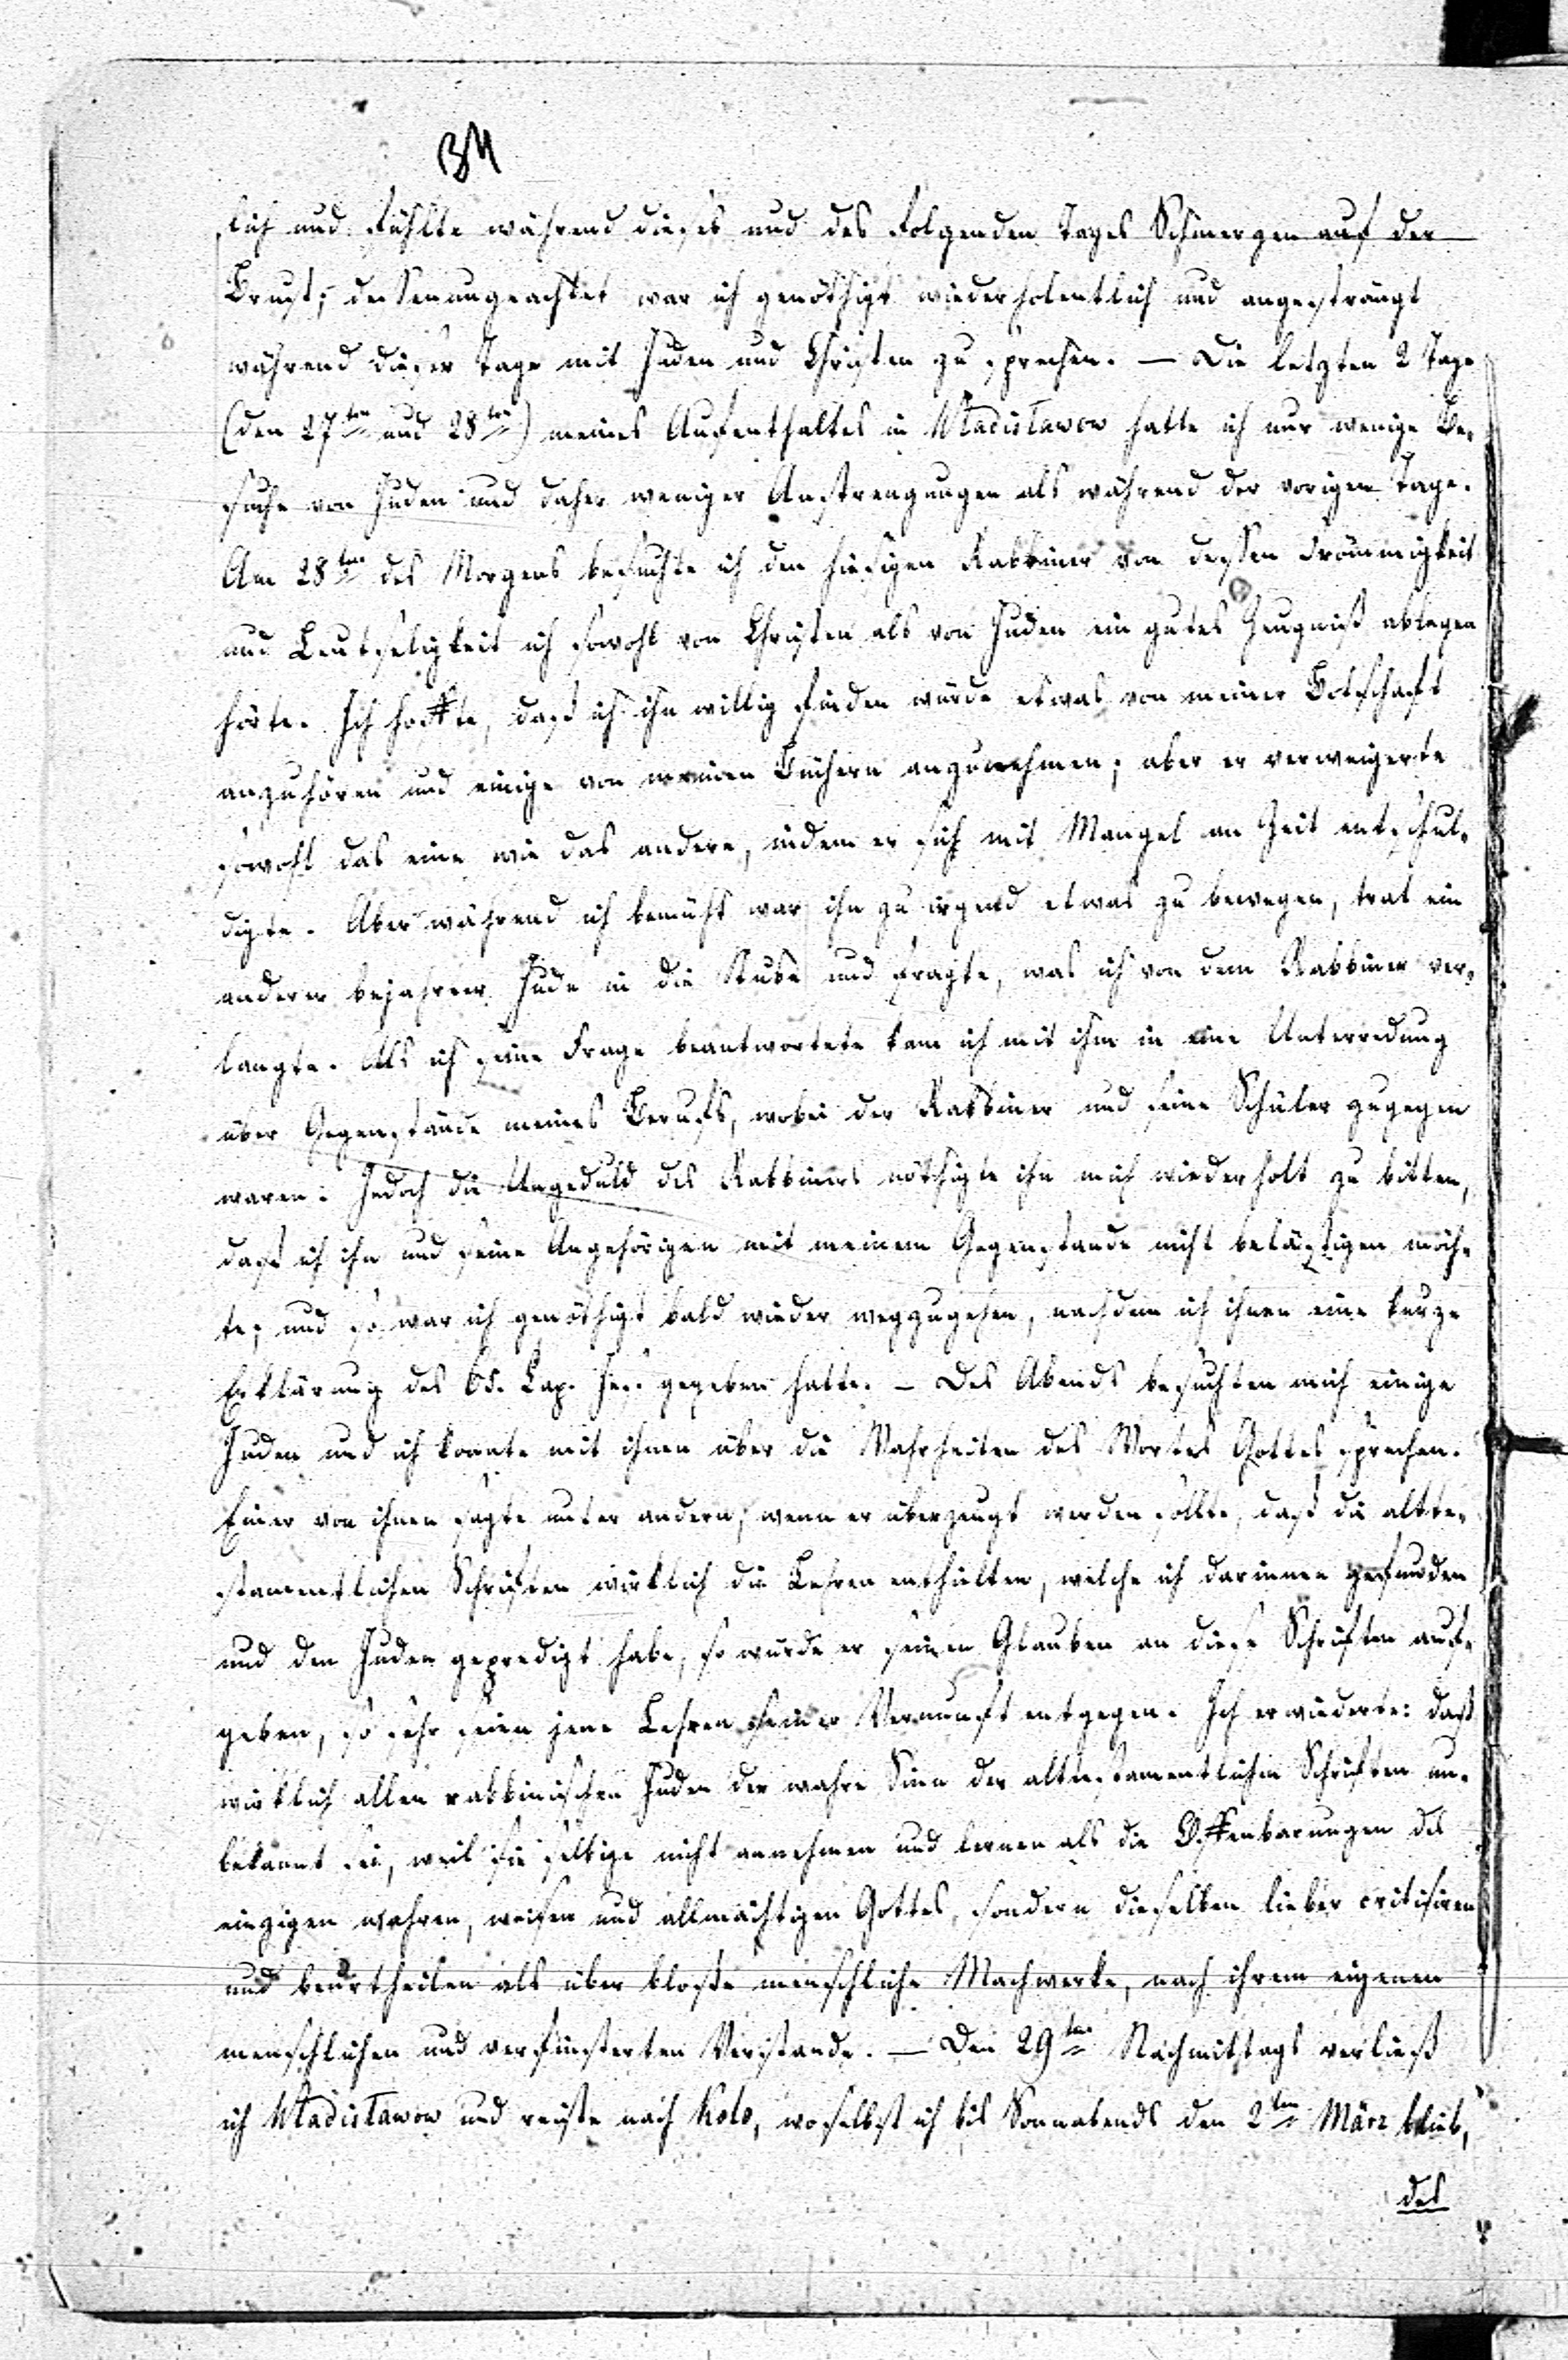 34
lich und fühlte während dieses und des folgenden Tages Schmerzen auf der
Brust; dessenungeachtet war ich genöthigt wiederholentlich und angesträngt
während dieser Tage mit Juden und Christen zu sprechen. — Die letzten 2 Tage
(den 27ten und 28ten) meines Aufenthaltes in Władisławow hatte ich nur wenige Be-
suche von Juden und daher weniger Anstrengungen als während der vorigen Tage.
Am 28ten des Morgens besuchte ich den hiesigen Rabbiner von dessen Frömmigkeit
und Leutseligkeit ich sowohl von Christen als von Juden ein gutes Zeugniß ablegen
hörte. Ich hoffte, daß ich ihn willig finden würde etwas von meiner Botschaft
anzuhören und einige von meinen Büchern anzunehmen; aber er verweigerte
sowohl das eine wie das andere, indem er sich mit Mangel an Zeit entschul-
digte. Aber während ich bemüht war ihn zu irgend etwas zu bewegen, trat ein
anderer bejahrter Jude in die Stube und fragte, was ich von dem Rabbiner ver-
langte. Als ich seine Frage beantwortete kam ich mit ihm in eine Unterredung
über Gegenstände meines Berufs, wobei der Rabbiner und seine Schüler zugegen
waren. Jedoch die Ungeduld des Rabbiners nöthigte ihn mich wiederholt zu bitten,
daß ich ihn und seine Angehörigen mit meinem Gegenstande nicht belästigen möch-
te; und so war ich genöthigt bald wieder wegzugehen, nachdem ich ihnen eine kurze
Erklärung des 65. Cap. Jes. gegeben hatte. — Des Abends besuchten mich einige
Juden und ich konnte mit ihnen über die Wahrheiten des Wortes Gottes sprechen.
Einer von ihnen sagte unter andern, wenn er überzeugt werden sollte, daß die altte-
stamentlichen Schriften wirklich die Lehren enthielten, welche ich darinnen gefunden
und den Juden gepredigt habe, so würde er seinen Glauben an diese Schriften auf-
geben, so sehr seien jene Lehren seiner Vernunft entgegen. Ich erwiederte: daß
wirklich allen rabbinischen Juden der wahre Sinn der alttestamentlichen Schriften un-
bekannt sei, weil sie selbige nicht annehmen und lernen als die Offenbarungen des
einzigen wahren, weisen und allmächtigen Gottes, sondern dieselben lieber critisiren
und beurtheilen als über bloße menschliche Machwerke, nach ihrem eigenen
menschlichen und verfinsterten Verstande. — Den 29ten Nachmittags verließ
ich Władisławow und reiste nach Kolo, woselbst ich bis Sonnabends den 2ten März blieb,
des